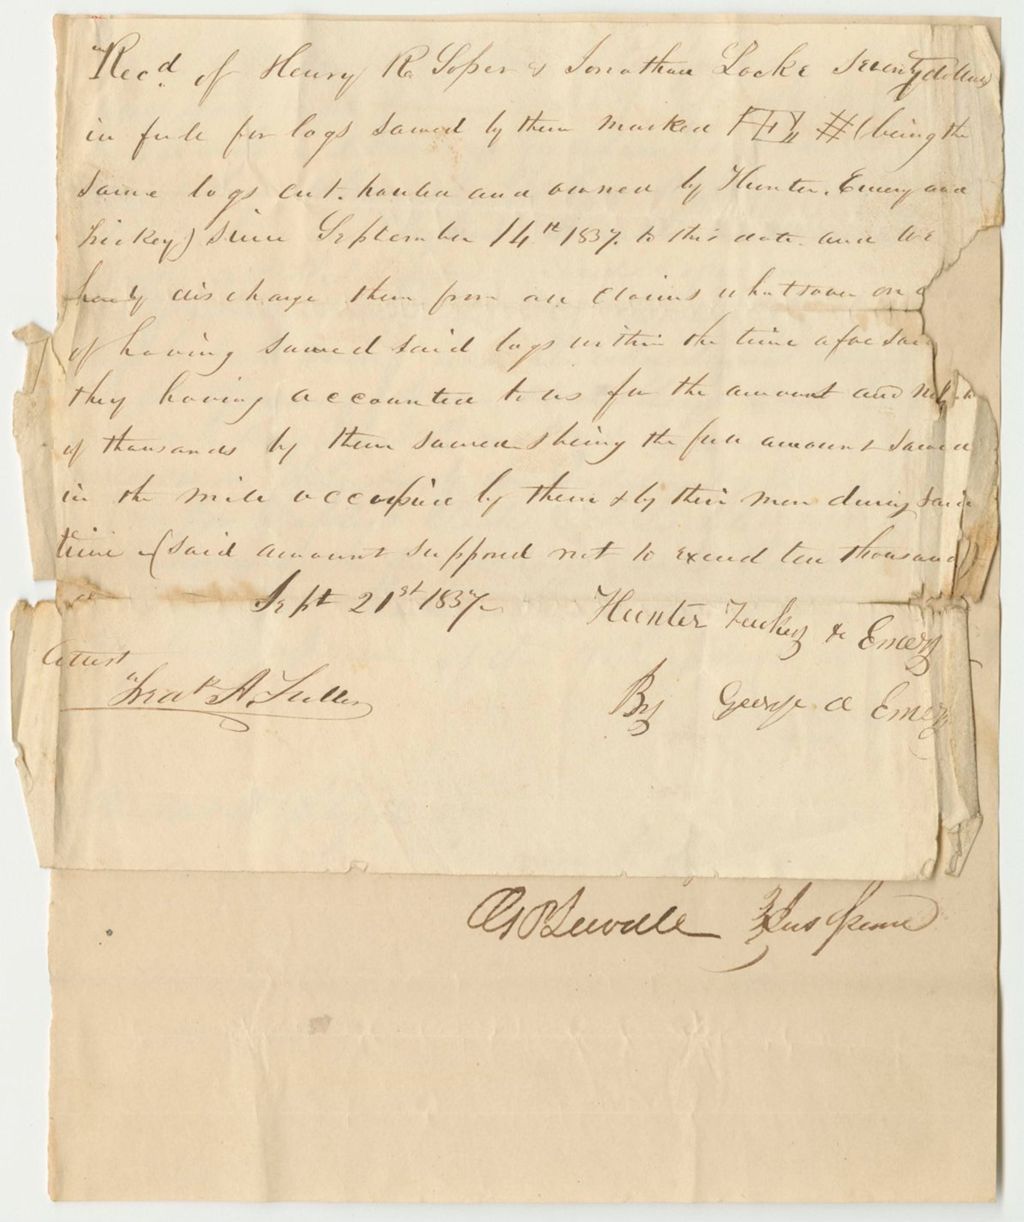 Recd of Henry R Soper & Jonathan Locke Seventy dollars
in full for logs sawed by them marked # (being the
Same logs cut, hauled and owned by Hunter, Emery and
Trickey) Since September 14th 1837. to this date. and we
hereby discharge them from all claims whatsoever on
of having sawed said logs within the time afore said
they having accounted to us for the amount and
of thousands by them sawed & being the full amount sawed
in the mill occupied by them & by their men during said
time (said amount supposed not to exceed ten thousand)
Sept 21st 1837
Hunter Trickey & Emery
Attest
A. Fuller
By George A Emery